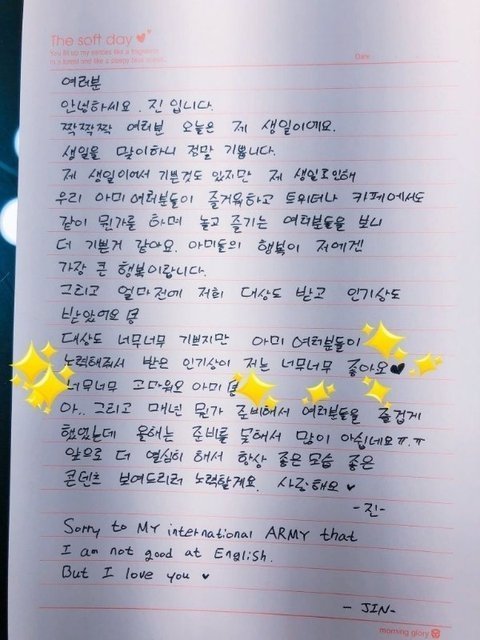 The soft day
Date
여러분
안녕하세요. 진 입니다.
짝짝짝 여러분 오늘은 제 생일이에요.
생일을 맞이하니 정말 기쁩니다.
제 생일이어서 기쁜것도 있지만 제 생일로인해
우리 아미 여러분들이 즐거워하고 트위터나 카페에서도
같이 뭔가를 하며 놀고 즐기는 여러분들을 보니
더 기쁜거 같아요. 아미들의 행복이 저에겐
가장 큰 행복이랍니다.
그리고 얼마전에 저희 대상도 받고 인기상도
받았어요
대상도 너무너무 기쁘지만 아미 여러분들이
노력해줘서 받은 인기상이 저는 너무너무 좋아요♥
너무너무 고마워요 아미
아.. 그리고 매년 뭔가 준비해서 여러분들을 즐겁게
했었는데 올해는 준비를 못해서 많이 아쉽네요 ㅠ.ㅠ
앞으로 더 열심히 해서 항상 좋은모습 좋은
콘텐츠 보여드리러 노력할게요. 사랑해요 ♥
-진-
Sorry to MY international ARMY that
I am not good at English.
But I love you ♥
- JIN-
morning glory